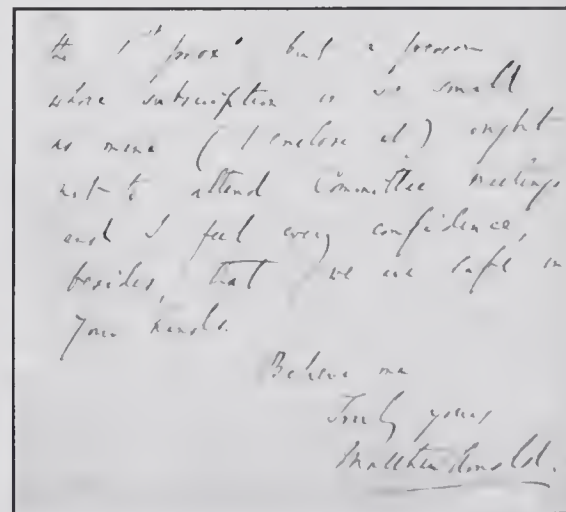 the 1st prox° but a person
whose subscription is so small
as mine (I enclose it) ought
not to attend Committee meetings
and I feel every confidence,
besides, that we are safe in
your hands.
Believe me
Truly yours
Matthew Arnold.